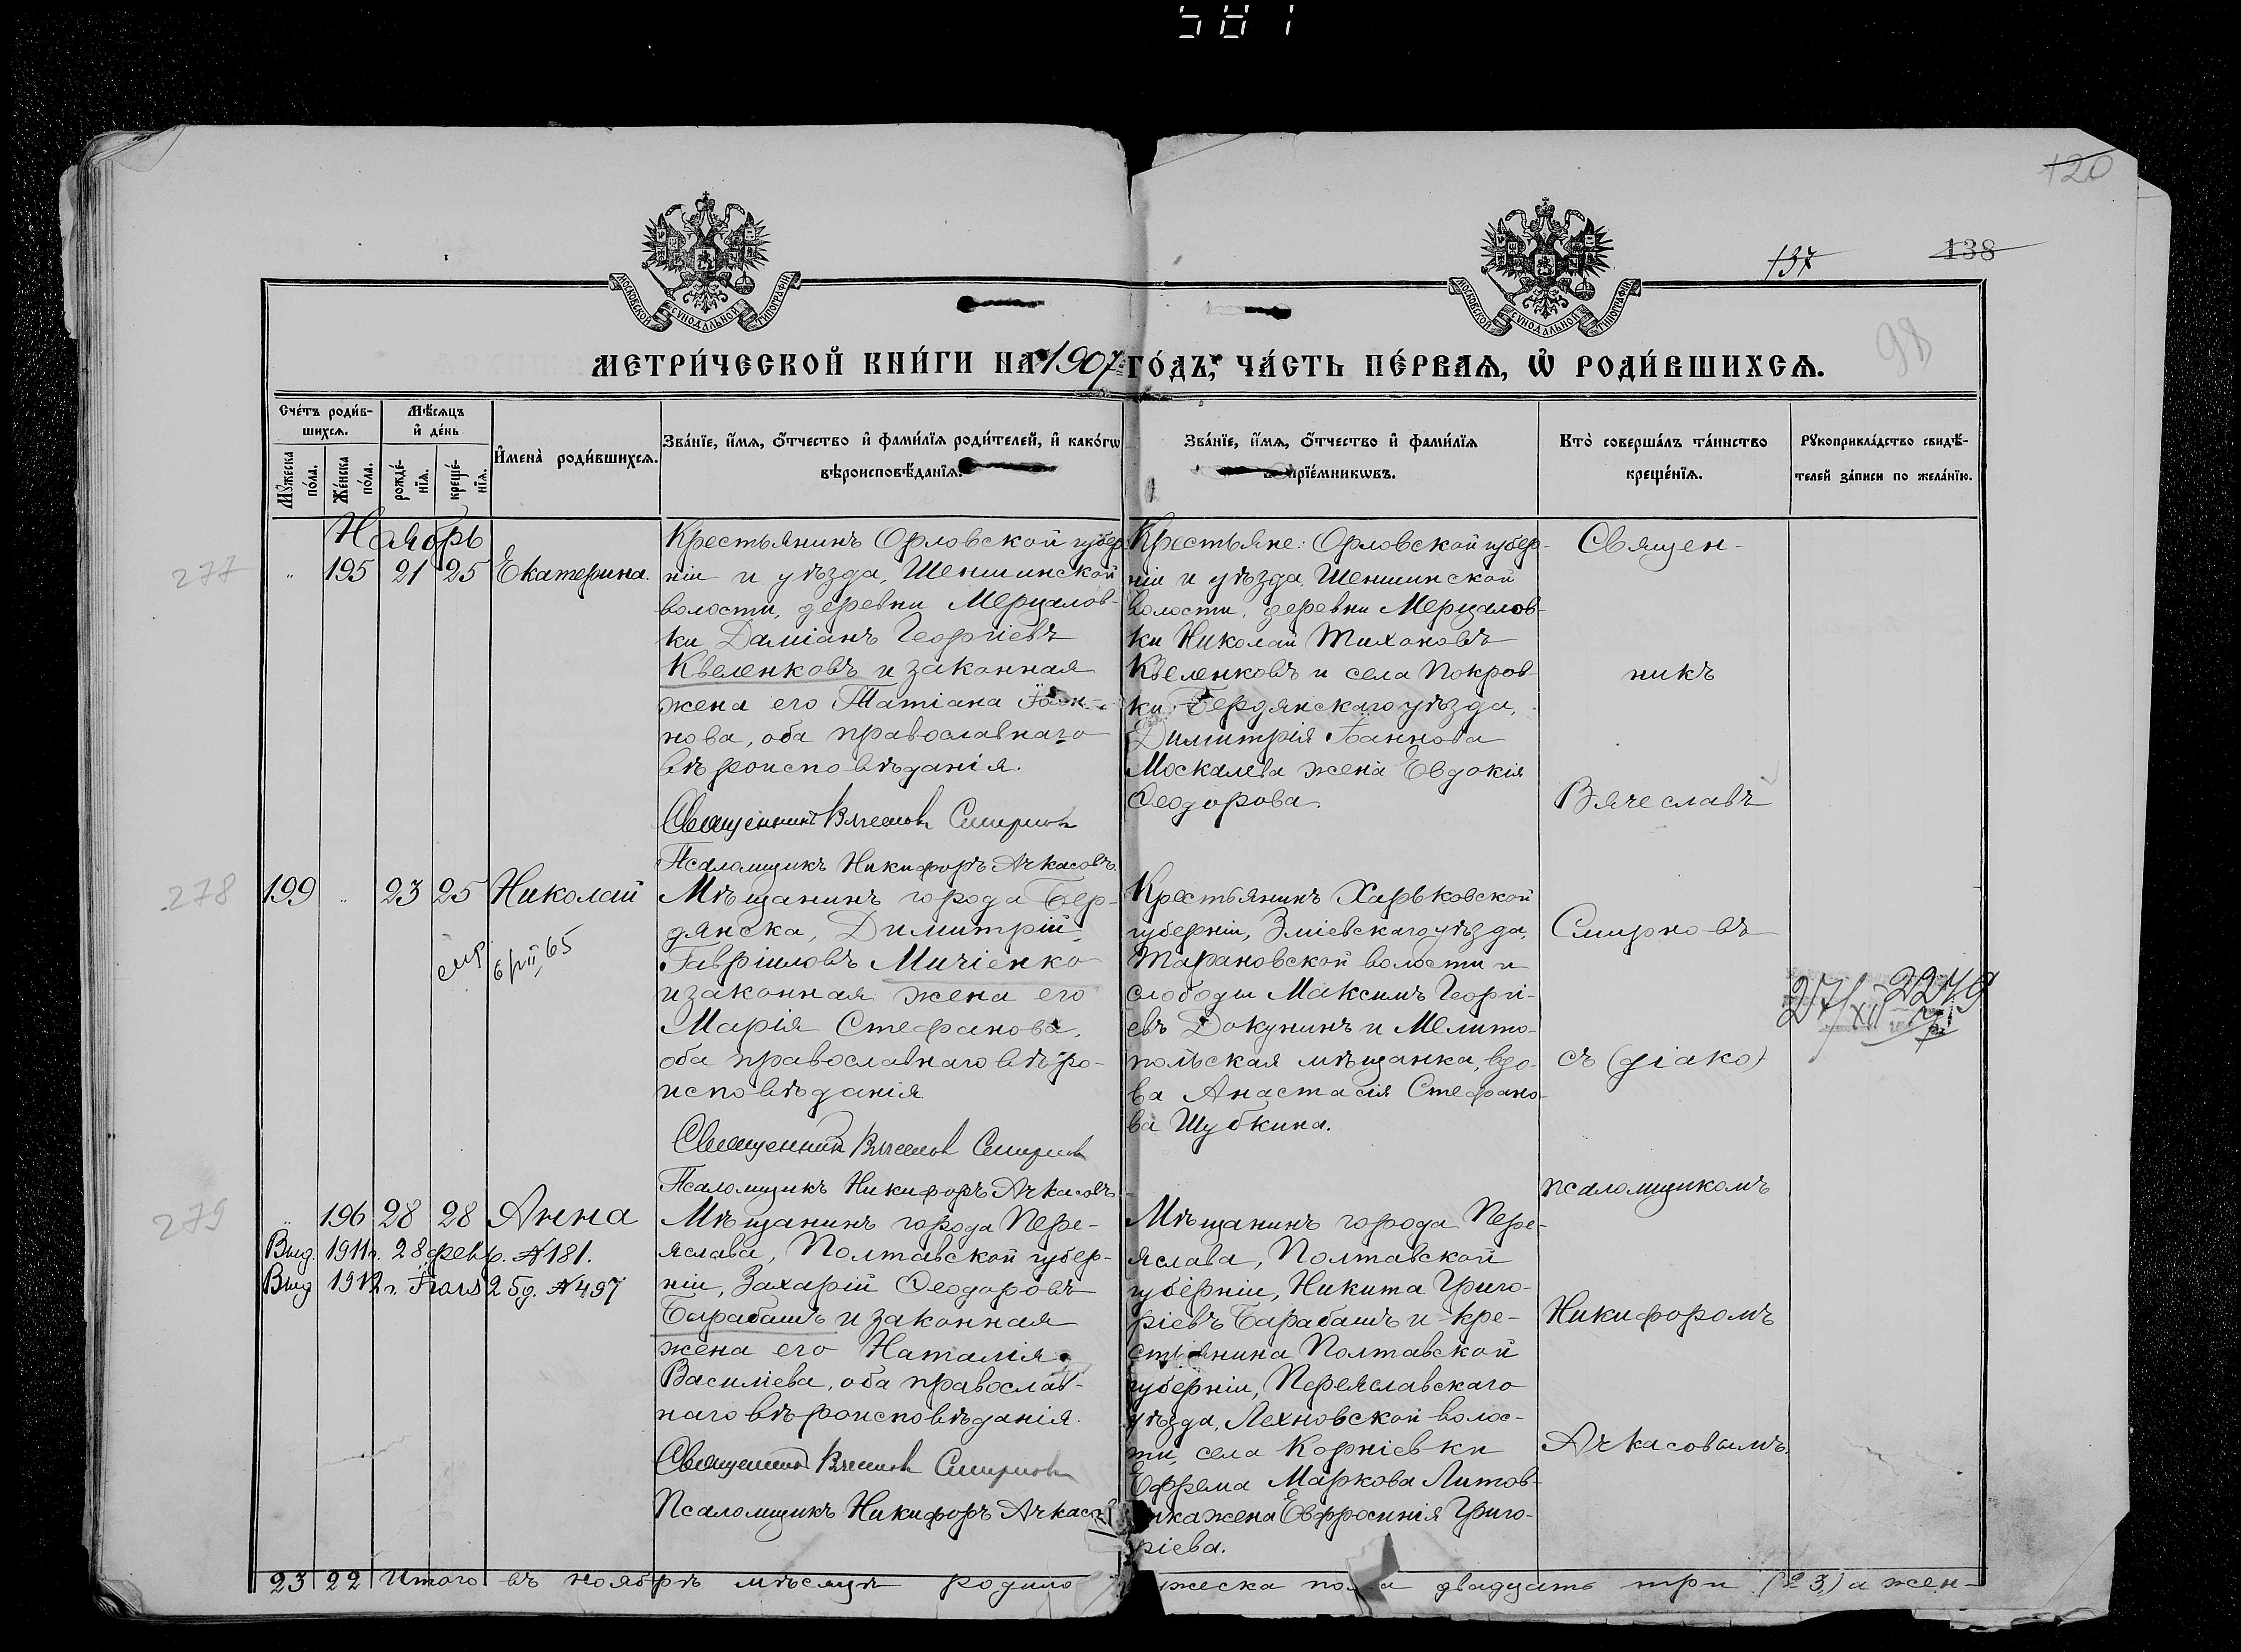 581
120
137
138
98
МОСКОВСКОЙ СѴНОДАЛЬНОЙ ТИПОГРАФІИ
МОСКОВСКОЙ СѴНОДАЛЬНОЙ ТИПОГРАФІИ
МЕТРИ́ЧЕСКОЙ КНИ́ГИ НА 1907 ГО́ДЪ, ЧА́СТЬ ПЕ́РВАѦ, Ѡ҆ РОДИ́ВШИХСѦ.
Сче́тъ роди́в-
шихсѧ.
Мꙋ́жеска по́ла.
Же́нска по́ла.
Мѣ́сѧцъ
и҆ де́нь
рожде́-
нїѧ.
креще́-
нїѧ.
И҆мена̀ роди́вшихсѧ.
Зва́нїе, и҆́мѧ, ѻ҆́тчество и҆ фами́лїѧ роди́телей, и҆ како́гѡ
вѣроисповѣ́данїѧ.
Зва́нїе, и҆́мѧ, ѻ҆́тчество и҆ фами́лїѧ
прїе́мникѡвъ.
Кто̀ соверша́лъ та́инство
креще́нїѧ.
Рꙋкоприкла́дство свидѣ́-
телей за́писи по жела́нїю.
Ноябрь
277
" 195 21 25 Екатерина.
Крестьянинъ Орловской губер-
ніи и уѣзда, Шеншинской
волости, деревни Мерцалов-
ки Даміанъ Георгіевъ
Квеленковъ и законная
жена его Татіана
нова, оба православнаго
вѣроисповѣданія.
Священникъ Вячеславъ Смирновъ
Псаломщикъ Никифоръ Ачкасовъ.
Крестьяне: Орловской губер-
ніи и уѣзда, Шеншинской
волости, деревни Мерцалов-
ки Николай Тихоновъ
Квеленковъ и села Покров-
ки, Бердянскаго уѣзда,
Димитрія Іоаннова
Москалева жена Евдокія
Ѳеодорова.
Священ-
никъ
Вячеславъ
Смирновъ
съ (діако)
псаломщикомъ
Никифоромъ
Ачкасовымъ.
278
199 " 23 25 Николай
Мѣщанинъ города Бер-
дянска, Димитрій
Гавріиловъ Мичіенко
и законная жена его
Марія Стефанова,
оба православнаго вѣро-
исповѣданія
Священникъ Вячеславъ Смирновъ
Псаломщикъ Никифоръ Ачкасовъ
Крестьянинъ Харьковской
губерніи, Зміевскаго уѣзда,
Тарановской волости и
слободы Максимъ Георгі-
евъ Докунинъ и Мелито-
польская мѣщанка, вдо-
ва Анастасія Стефано-
ва Шубкина.
27/XII 2279
279
" 196 28 28 Анна
Выд. 1911 г. 28 февр. № 181.
Выд 1912 г. 25 д. № 497
Мѣщанинъ города Пере-
яслава, Полтавской губер-
ніи, Захарій Ѳеодоровъ
Барабашъ и законная
жена его Наталія
Василіева, оба православ-
наго вѣроисповѣданія.
Священникъ Вячеславъ Смирновъ
Псаломщикъ Никифоръ Ачкасовъ
Мѣщанинъ города Пере-
яслава, Полтавской
губерніи, Никита Григо-
ріевъ Барабашъ и кре-
стьянина Полтавской
губерніи, Переяславскаго
уѣзда, Лехновской волос-
ти, села Корніевки
Ефрема Маркова Литов-
жена Евфросинія Григо-
ріева.
23 22 Итого въ ноябрѣ мѣсяцѣ двадцать три (23) а жен-